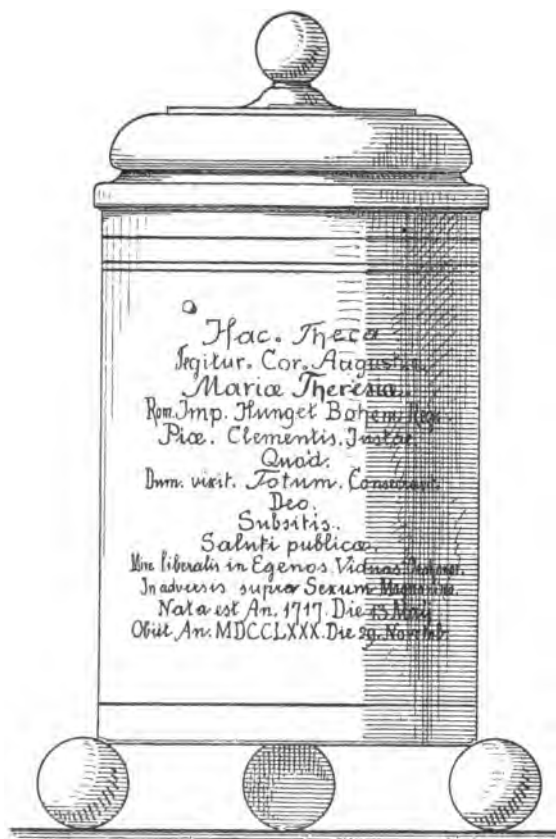 Hac. Theca
Tegitur. Cor. Augustæ.
Mariæ Theresiæ.
Rom. Imp. Hung et Bohem. Reg.
Piæ. Clementis. Justæ.
Quod.
Dum. vixit. Totum. Consecravit.
Deo.
Subsitis..
Saluti publicæ.
Mire liberalis in Egenos. Viduas
In adversis supra Sexum Magnanima.
Nata est An. 1717. Die 13 Maij
Obiit An. MDCCLXXX. Die 29. Novemb.